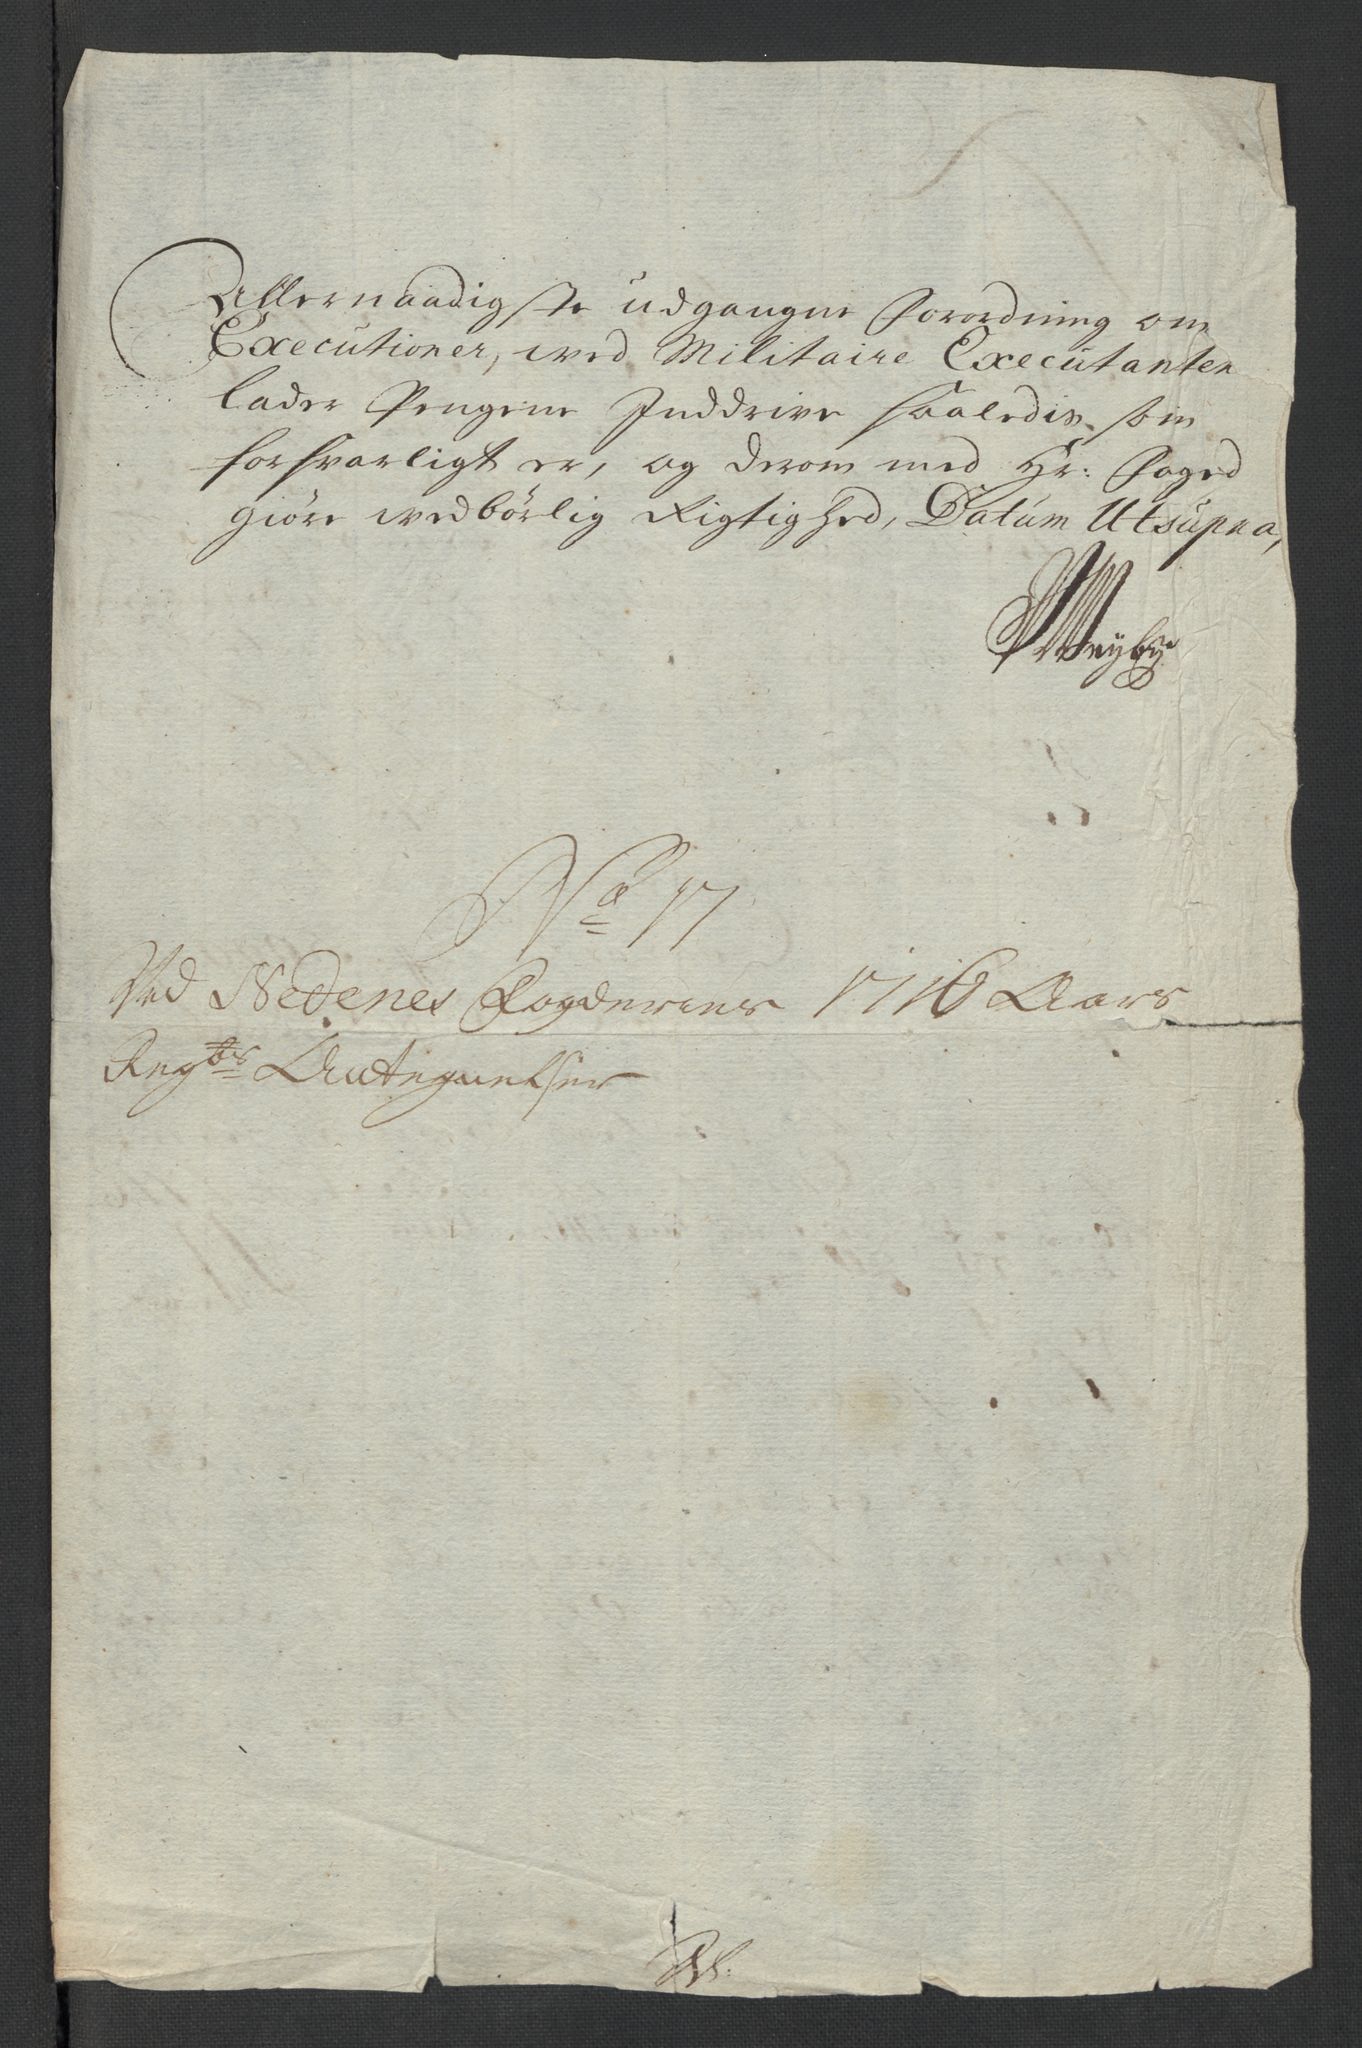 Allernaadigste udgangne Forordning om
Executioner, wed Militaire Executanter
lader Pengene Inddrive saaledis som
forsvarligt er, og derom med Hr: Foged
giöre wedbörlig Rigtighed, Datum Ut supra,
Weyby
No 17
Ved Nedenes Fogderies 1716 Aars
Regbs Antegnelser